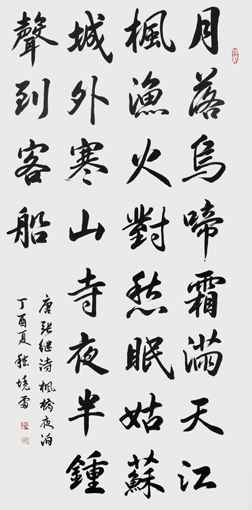 月落烏啼霜滿天江
楓漁火對愁眠姑蘇
城外寒山寺夜半鍾
聲到客船
唐張继詩楓橋夜泊
丁酉夏